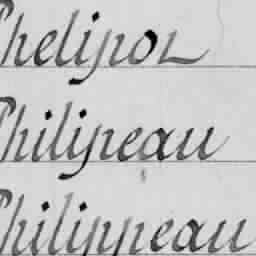 Phelipot
Philipeau
Philippeau